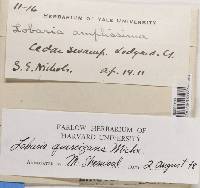 11-16
HERBARIUM OF YALE UNIVERSITY
Lobaria amplissima
Cedar Swamp. Ledyard. Ct.
S. E. Nichols. Ap. 19.11
FARLOW HERBARIUM OF
HARVARD UNIVERSITY
Lobaria quercizans Michx.
M. Sherwood 2 August 78